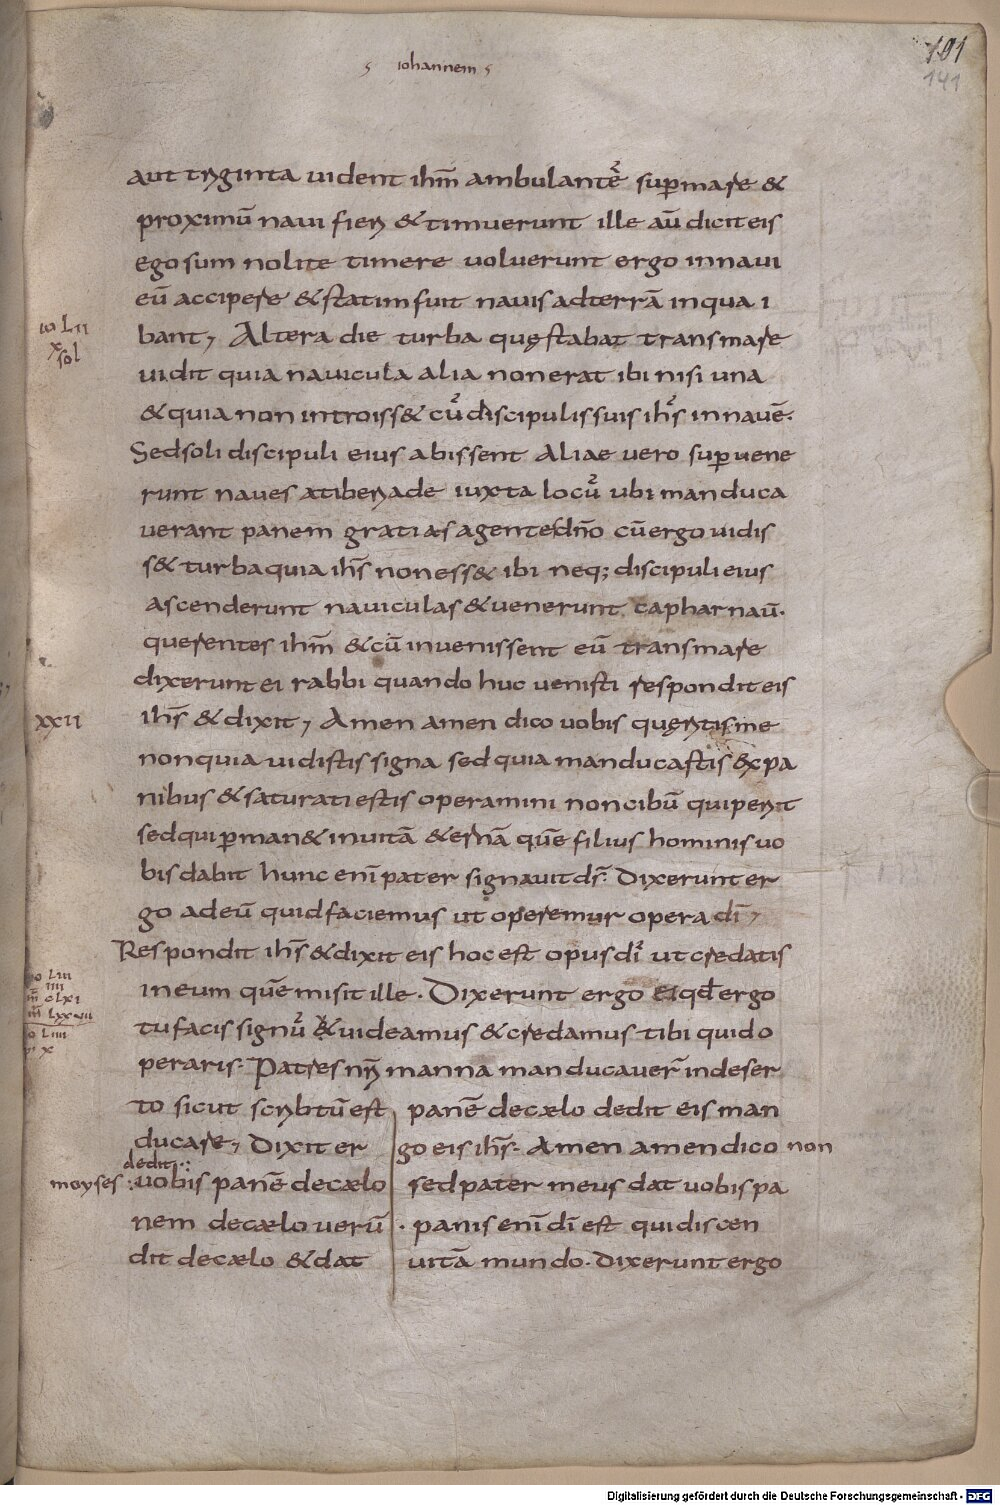 iohannem
101
141
aut triginta uident ihm̄ ambulantē sup̱ mare &
proximū naui fieri & timuerunt ille aū dicit eis
Ego sum nolite timere uoluerunt ergo in naui
eū accipere & statim fuit nauis ad terrā in qua i
bant, Altera die turba quę stabat trans mare
uidit quia nauicula alia non erat ibi nisi una
& quia non introiss& cū discipulis suis ihs̄ in nauē.
Sed soli discipuli eius abissent Aliae uero sup̱uene
runt naues a tiberiade iuxta locū ubi manduca
uerant panem gratias agente dn̄o cū ergo uidis
s& turba quia ihs̄ non ess& ibi neq; discipuli eius
ascenderunt nauiculas & uenerunt capharnaū.
querentes ihm̄ & cū inuenissent eū trans mare
dixerunt ei rabbi quando huc uenisti respondit eis
ihs̄ & dixit, Amen amen dico uobis quęritis me
non quia uidistis signa sed quia manducastis ex pa
nibus & saturati estis operamini non cibū qui perit
sed qui p̱man& in uitā &ernā quē filius hominis uo
bis dabit hunc enī pater signauit ds̄. Dixerunt er
go ad eū quid faciemus ut operemur opera dī,
Respondit ihs̄ & dixit eis hoc est opus dī ut credatis
in eum quē misit ille. Dixerunt ergo ei qd̄ ergo
tu facis signū & uideamus & credamus tibi quid o
peraris. Patres nr̄i manna manducauer̄ in deser
to sicut scribtū est panē de cælo dedit eis man
ducare, Dixit er go eis ihs̄. Amen amen dico non
dedit
moyses uobis panē de cælo sed pater meus dat uobis pa
nem de cælo uerū . panis enī dī est qui discen
dit de cælo & dat uitā mundo. Dixerunt ergo
io Lii
x
sol
xxii
io Liii
iiii
m̄ cLxi
m̄ Lxxvii
o Liiii
x
Digitalisierung gefördert durch die Deutsche Forschungsgemeinschaft - DFG